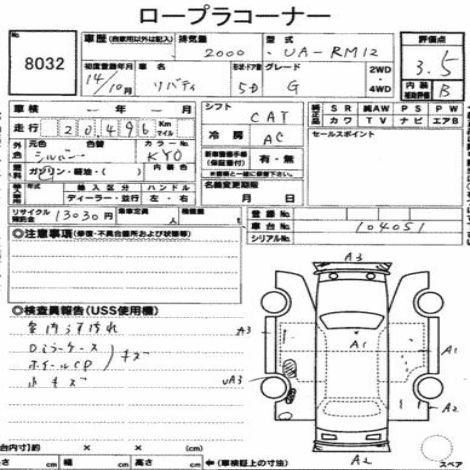 ロープラコーナー
No. 8032
車歴 (自家用以外は記入) 排気量 2000 型式 UA-RM12
評価点 3.5
内装 補助評価 B
初度登録年月 14/10月 車名 リバティ 形状・ドア数 5D グレード G 2WD 4WD
車検 - 年 - 月
シフト CAT
純正品 SR 純AW PS PW
カワ TV ナビ エアB
走行 20496 Km マイル
冷房 AC
セールスポイント
外色 シルバー 元色 色替 カラーNo. KY0
新車整備手帳 (保証書付) 有・無
燃料 ガソリン・軽油・( )
名義変更期限 月 日
輸入車 輸入区分 ハンドル
ディーラー・並行 左・右
リサイクル預託金 13030円 乗車定員 人 積載量
登録No.
車台No. 104051
シリアルNo.
◎注意事項 (修復・不具合箇所および状態等)
◎検査員報告 (USS使用欄)
室内うす汚れ
Dミラーケース
ホイールCP キズ
小キズ
A3
A3
A1
A1
UA3
A2
A2
スペア
荷台内寸 (約) × × cm
高さ cm 幅 cm 長さ cm ← (車検証上の寸法)